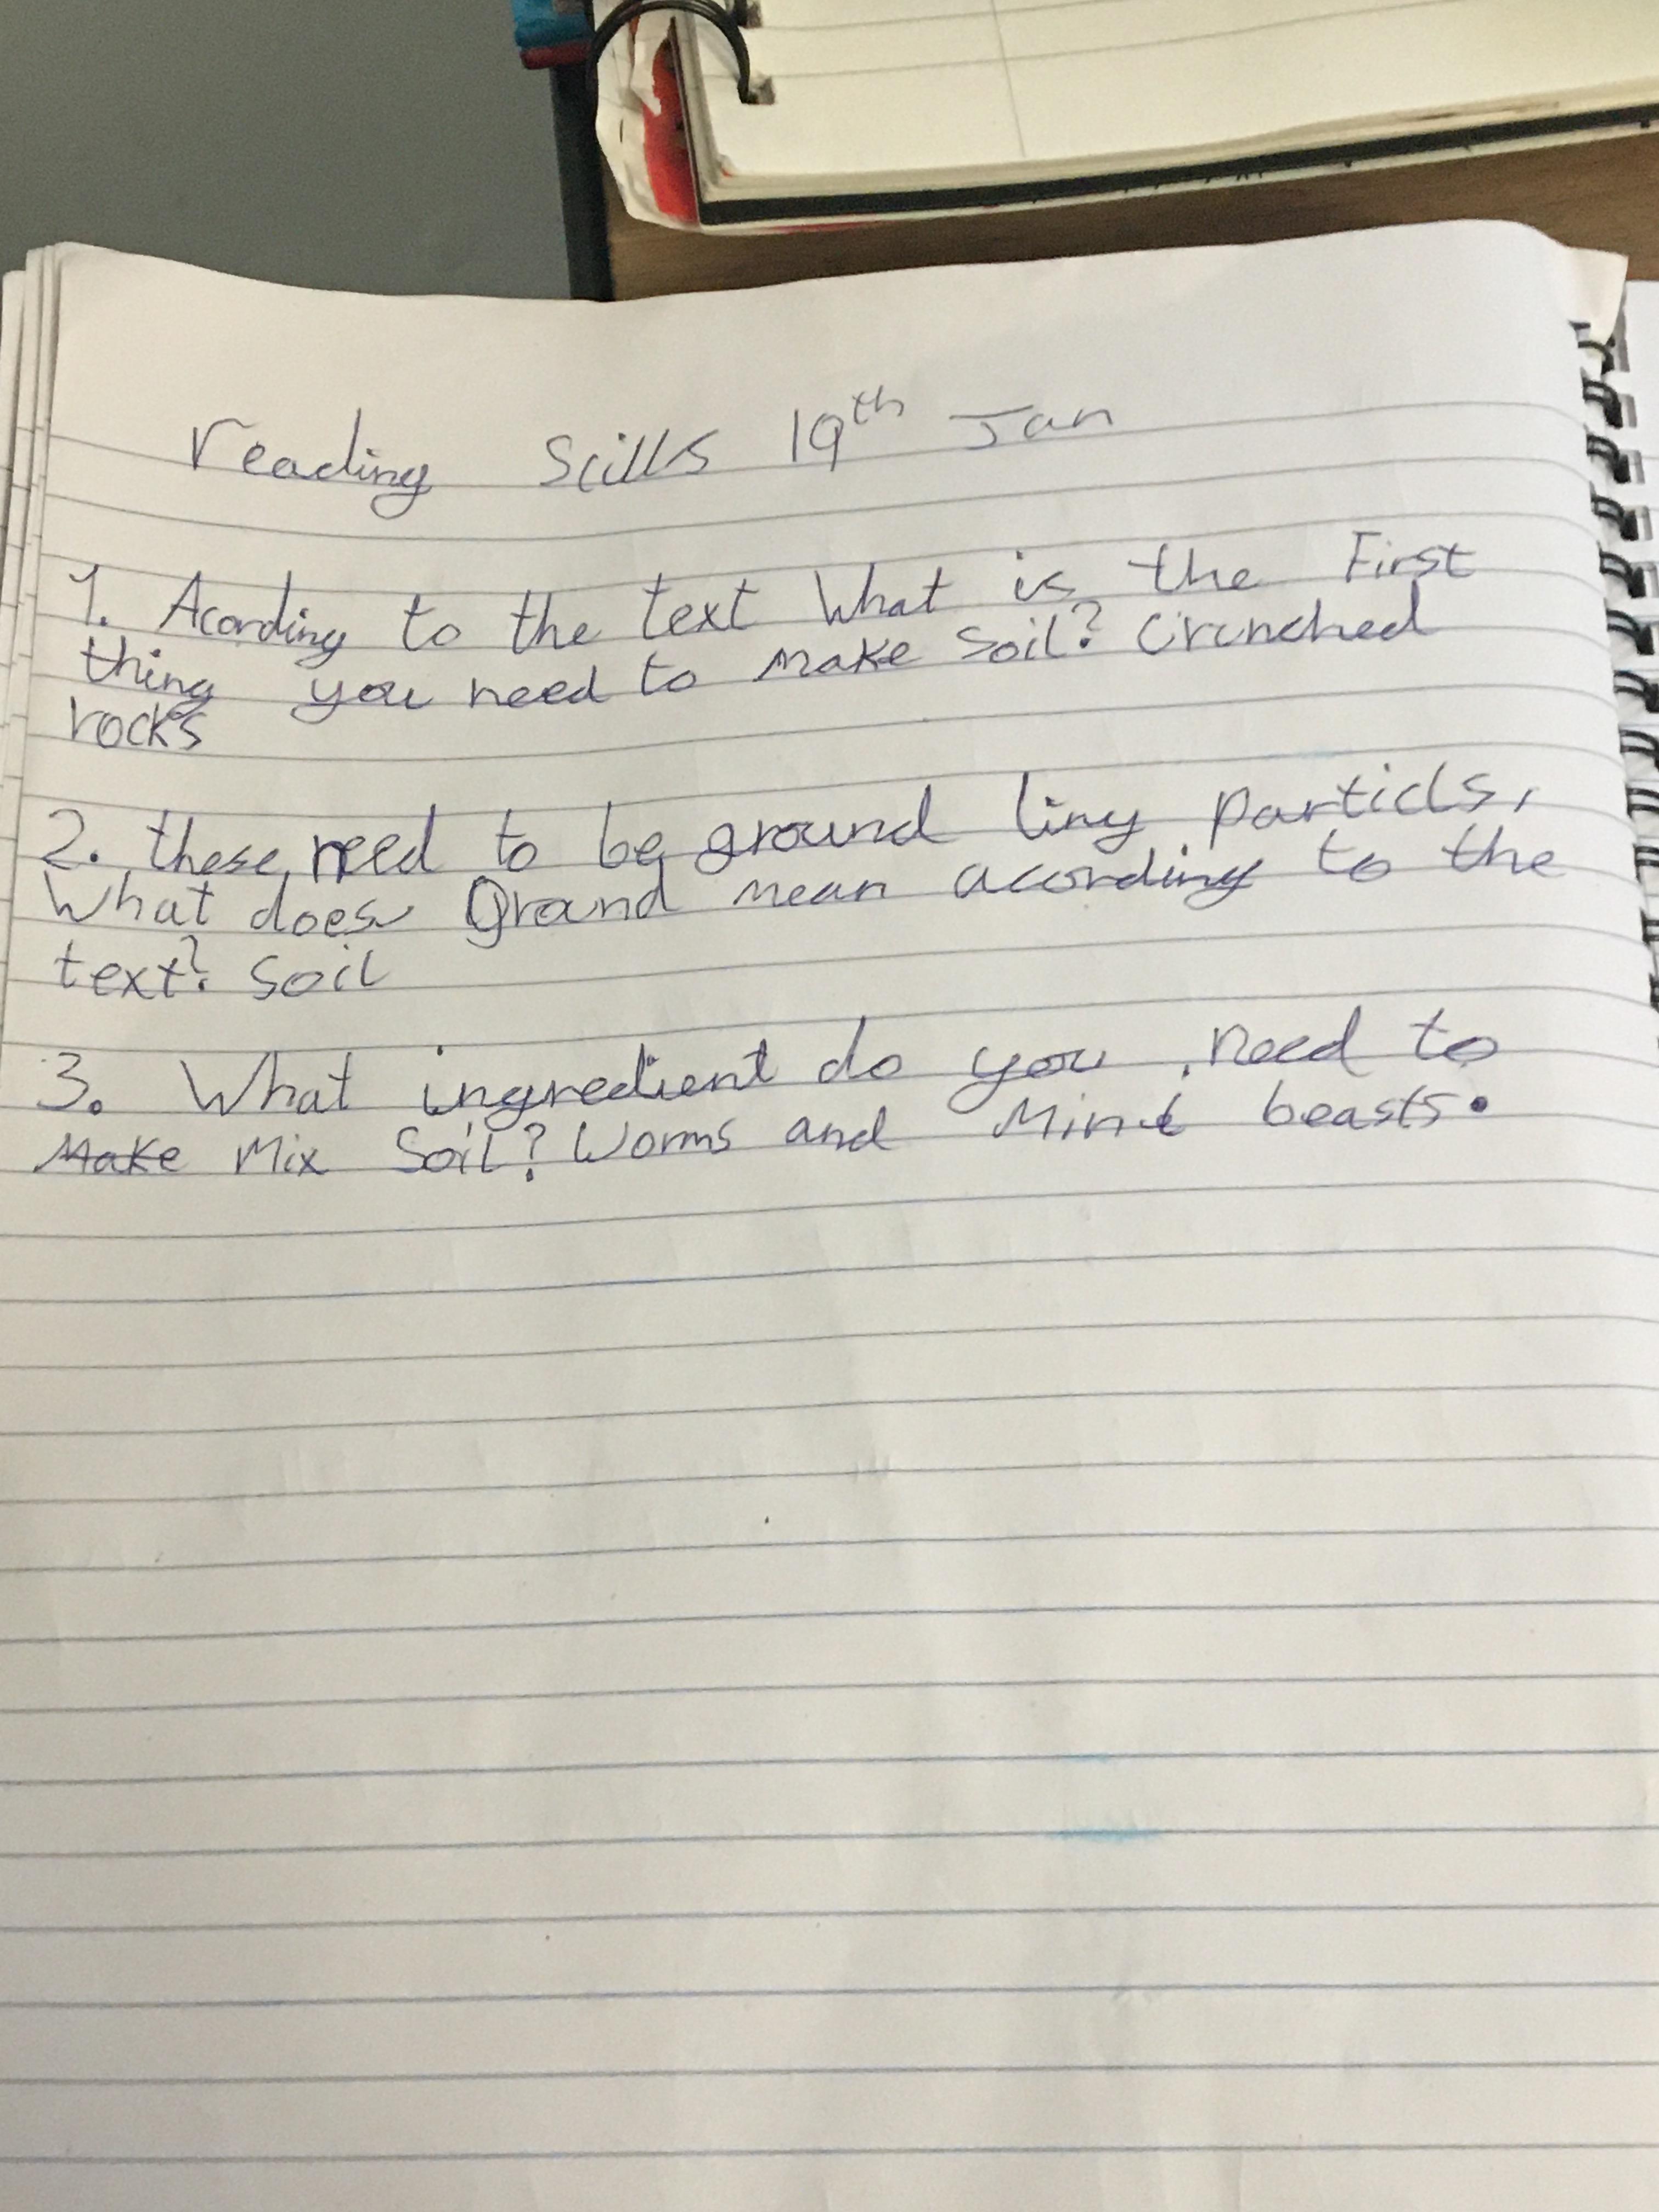 reading Scills 19th Jan
1. Acording to the text What is the First
thing you need to make Soil? Crunched
rocks
2. these need to be ground tiny particls,
What does Ground mean acording to the
text? Soil
3. What ingredient do you need to
Make Mix Soil? Worms and Mini beasts.